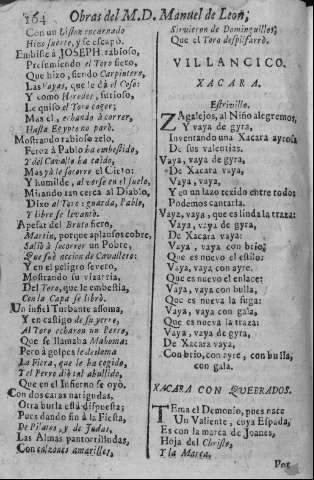 164 Obras del M. D. Manuel de Leon,
Con un Liston encarnado
Hizo suerte, y se escapò.
Embiste à JOSEPH rabioso,
Presumiendo el Toro fiero,
Que hizo, siendo Carpintero,
Las Vayas, que le dà el Coso:
Y como Herodes, furioso,
Le quiso al Toro coger;
Mas el, echando à correr,
Hasta Egypto no parò.
Mostrando rabioso zelo,
Ferez à Pablo ha embestido,
Y del Cavallo ha caido,
Mas yà le socorre el Cielo:
Y humilde, al verse en el suelo,
Mirando tan cerca al Diablo,
Dixo al Toro: guarda, Pablo,
Y libre se levantò.
Apesar del Bruto fiero,
Martin, porque aplausos cobre,
Saliò à socorrer un Pobre,
Que fuè accion de Cavallero:
Y en el peligro severo,
Mostrando su vizarria,
Del Toro, que le embestia,
Con la Capa se librò.
Un infiel Turbante assoma,
Y en castigo de su yerro,
Al Toro echaron un Perro,
Que se llamaba Mahoma:
Pero à golpes le desloma
La Fiera, que le ha cogido,
Y el Perro diò tal ahullido,
Que en el Infierno se oyò.
Con dos caras narigudas,
Otra burla està dispuesta;
Pues dando fin à la Fiesta,
De Pilatos, y de Judas,
Las Almas pantorrilludas,
Con calzones amarillos,
Sirvieron de Dominguillos;
Que el Toro despilfarrò.
VILLANCICO.
XACARA.
Estrivillo.
ZAgalejos, al Niño alegremos,
Y vaya de gyra,
Inventando una Xacara ayrosa
De sus valentias.
Vaya, vaya de gyra,
De Xacara vaya,
Vaya, vaya,
Y en un lazo texido entre todos
Podemos cantarla.
Vaya, vaya, que es linda la traza:
Vaya, vaya de gyra,
De Xacara vaya:
Vaya, vaya con brio;
Que es nuevo el estilo:
Vaya, vaya con ayre.
Que es nuevo el enlace:
Vaya, vaya con bulla,
Que es nueva la fuga:
Vaya, vaya con gala,
Que es nueva la traza:
Vaya, vaya de gyra,
De Xacara vaya,
Con brio, con ayre, con bulla,
con gala.
XACARA CON QUEBRADOS.
TEma el Demonio, pues nace
Un Valiente, cuya Espada,
Es con la marca de Joanes,
Hoja del Christo,
Y la Marca.
Por